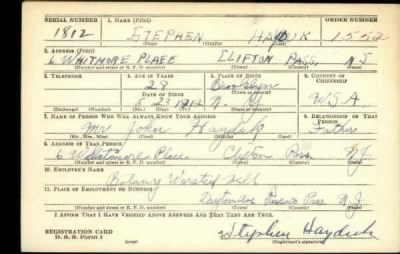 SERIAL NUMBER 1. NAME (Print) ORDER NUMBER
1812 STEPHEN HAYDUK 1552
(First) (Middle) (Last)
2. ADDRESS (Print)
6 WHITMORE PLACE CLIFTON PASS. NJ
(Number and street or R. F. D. number) (Town) (County) (State)
3. TELEPHONE 4. AGE IN YEARS 5. PLACE OF BIRTH 6. COUNTRY OF CITIZENSHIP
28 Brooklyn
DATE OF BIRTH (Town or county)
5 23 1912 N. Y. U.S.A.
(Exchange) (Number) (Mo.) (Day) (Yr.) (State or country)
7. NAME OF PERSON WHO WILL ALWAYS KNOW YOUR ADDRESS 8. RELATIONSHIP OF THAT PERSON
Mr John Hayduk Father
(Mr., Mrs., Miss) (First) (Middle) (Last)
9. ADDRESS OF THAT PERSON
6 Whitmore Place Clifton Pass NJ
(Number and street or R. F. D. number) (Town) (County) (State)
10. EMPLOYER'S NAME
Botany Worsted Mill
11. PLACE OF EMPLOYMENT OR BUSINESS
Passaic Pass N.J.
(Number and street or R. F. D. number) (Town) (County) (State)
I AFFIRM THAT I HAVE VERIFIED ABOVE ANSWERS AND THAT THEY ARE TRUE.
REGISTRATION CARD Stephen Hayduk
D. S. S. Form 1 (over) (Registrant's signature)